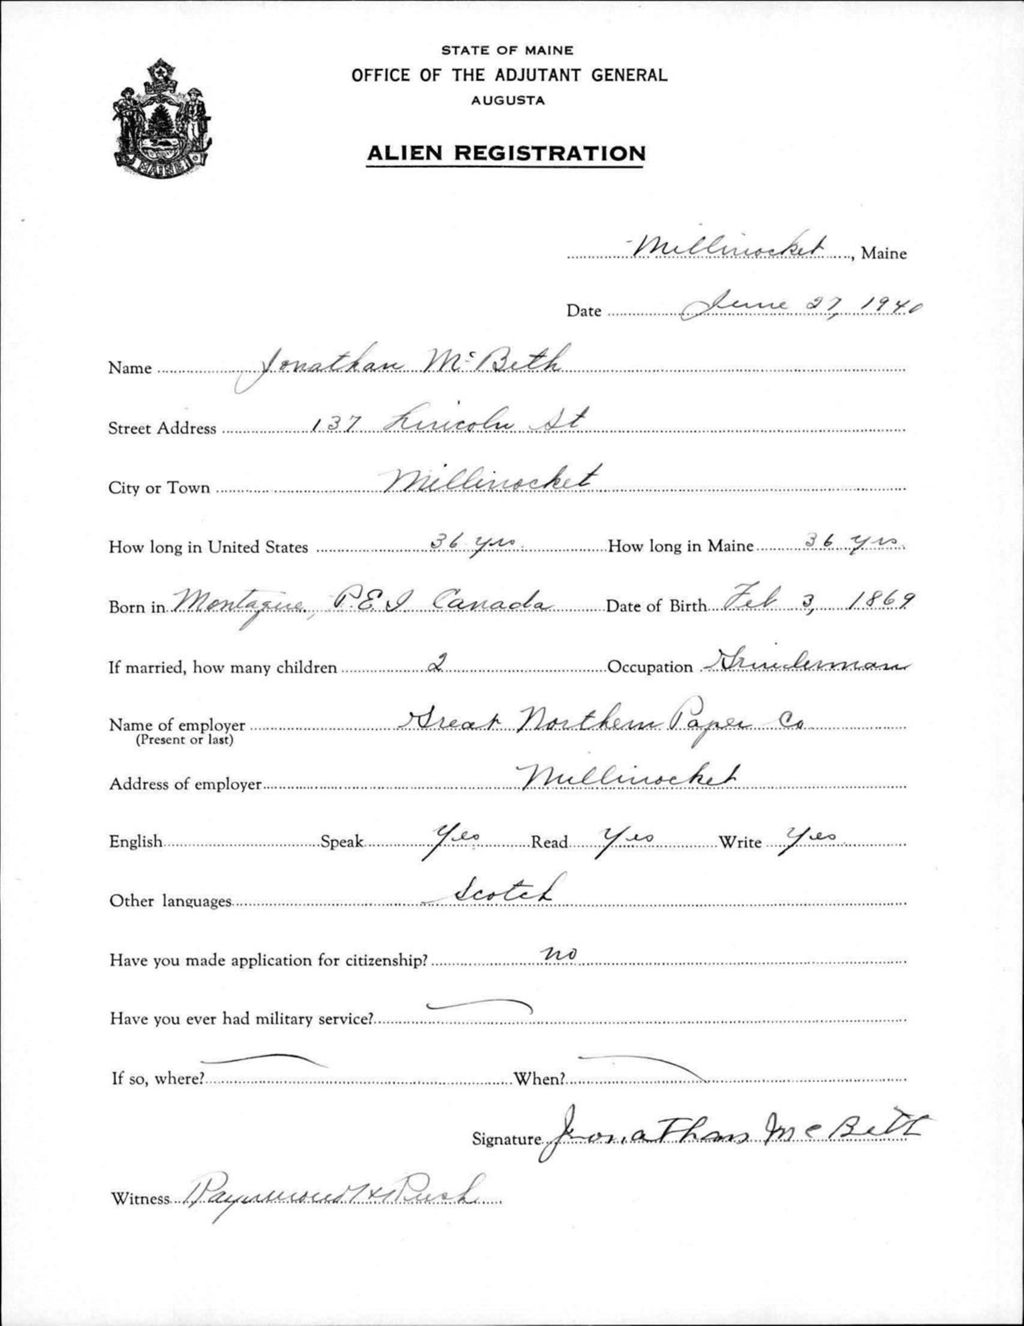 STATE OF MAINE
OFFICE OF THE ADJUTANT GENERAL
AUGUSTA
ALIEN REGISTRATION
MAINE
Millinocket, Maine
Date June 27, 1940
Name Jonathan McBeth
Street Address 137 Lincoln St
City or Town Millinocket
How long in United States 36 yrs. How long in Maine 36 yrs.
Born in Montague, P.E.I Canada Date of Birth Feb 3, 1869
If married, how many children 2 Occupation Grinderman
Name of employer Great Northern Paper Co
(Present or last)
Address of employer Millinocket
English Speak Yes Read Yes Write Yes
Other languages Scotch
Have you made application for citizenship? no
Have you ever had military service?
If so, where? When?
Signature Jonathan McBeth
Witness Raymond H Rush